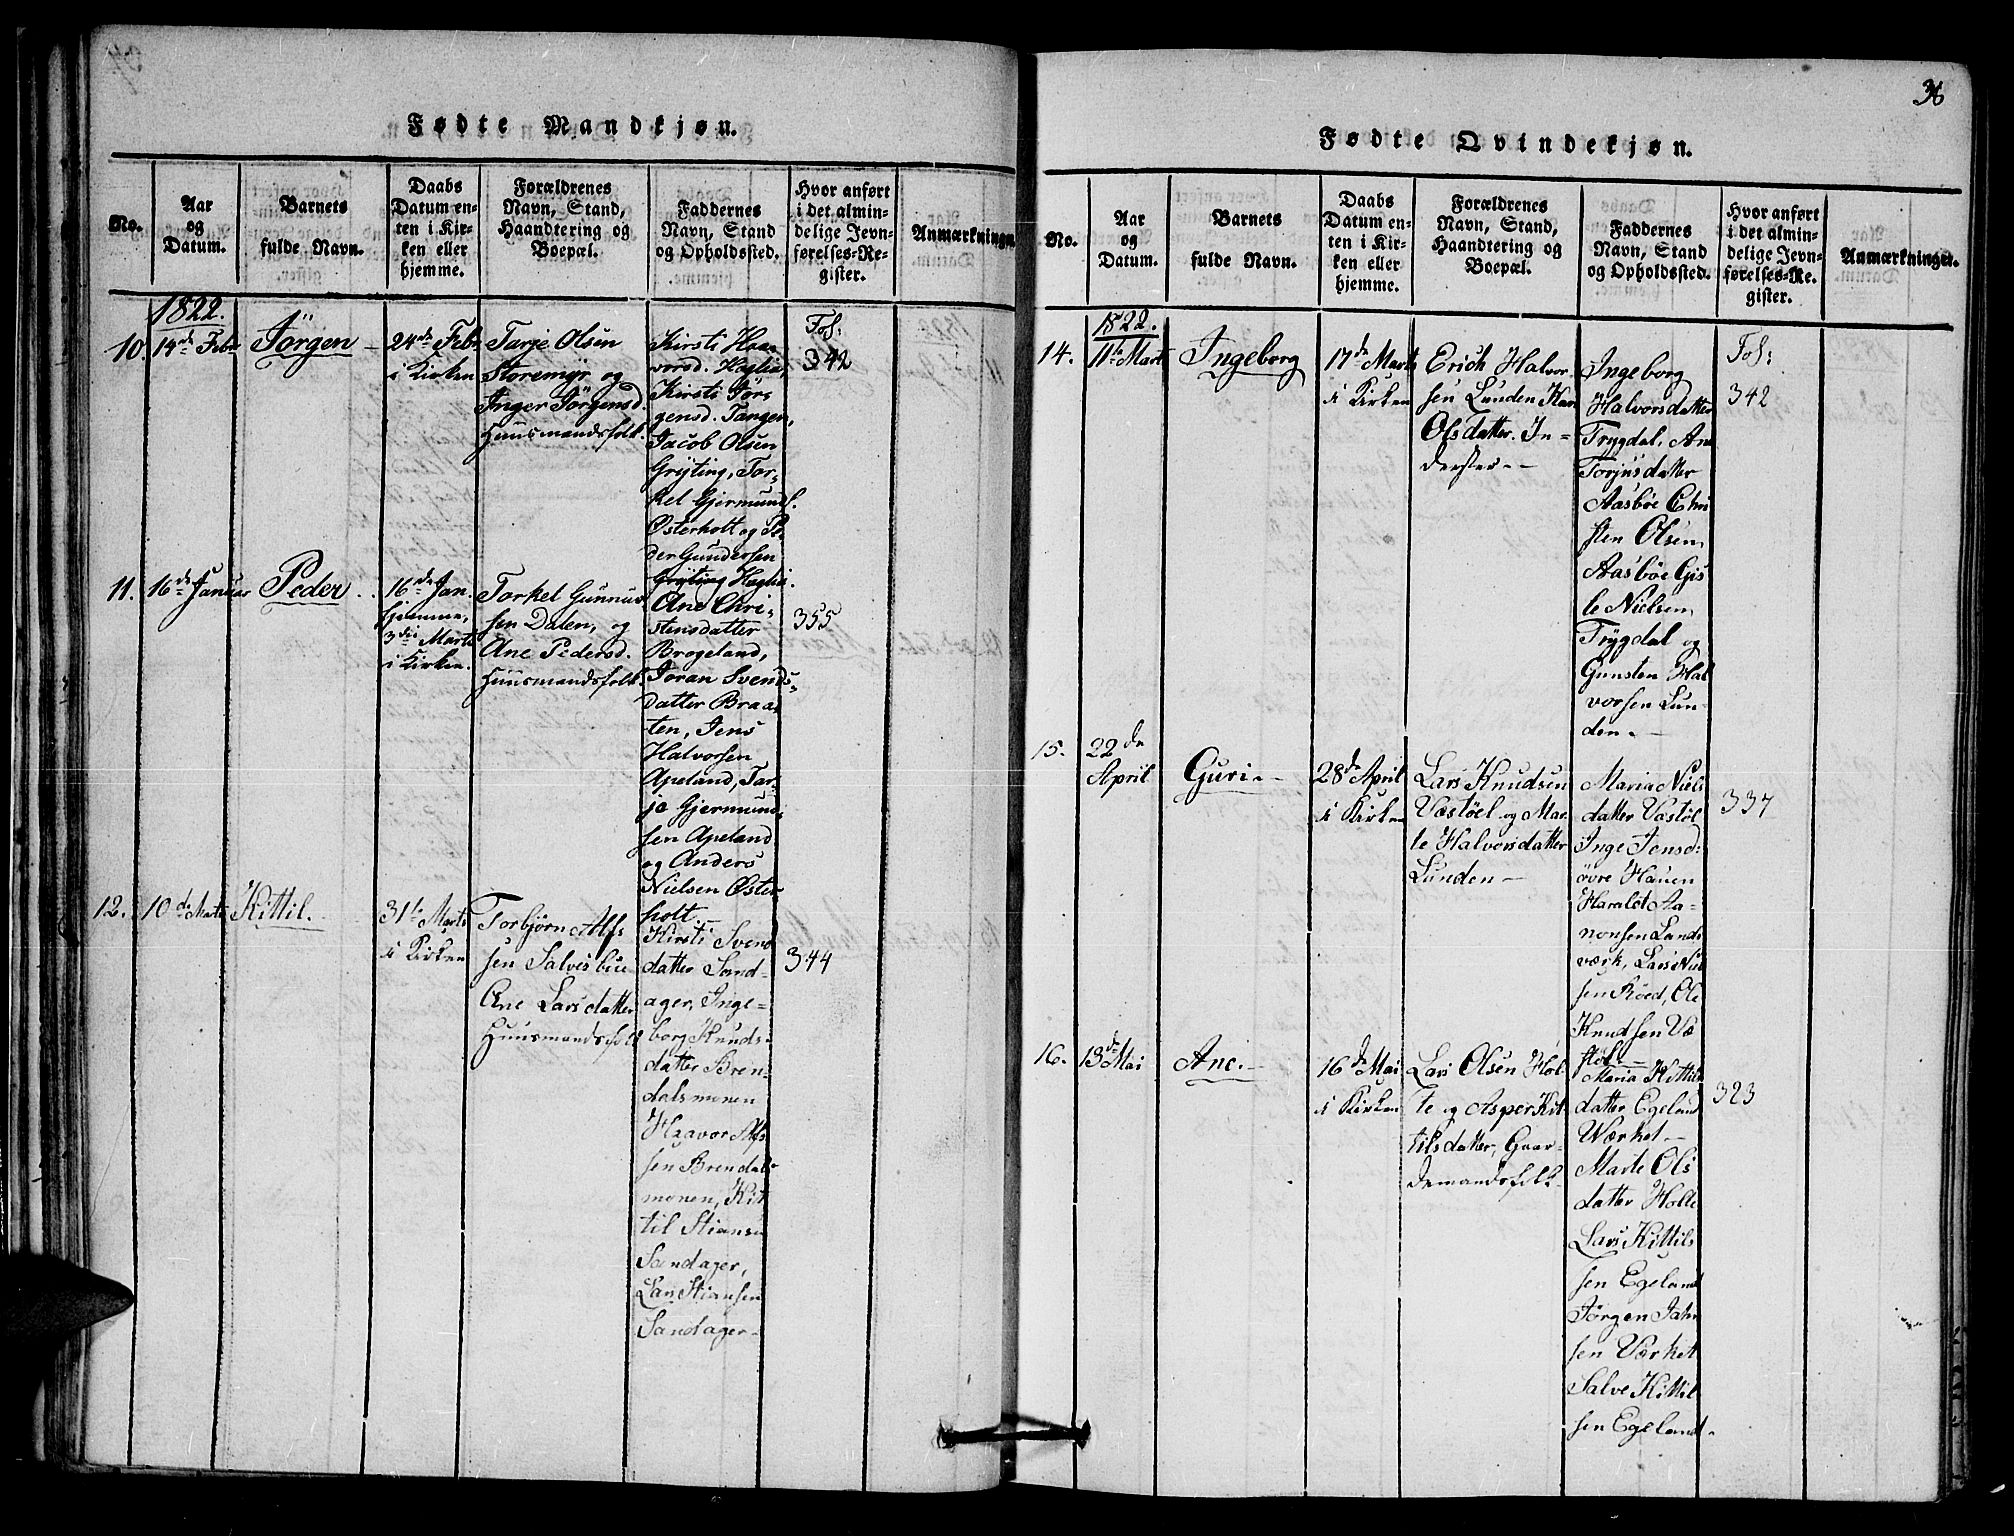 Fødte Mandkjøn.
No.
Aar
og
Datum.
Barnets
fulde Navn.
Daabs
Datum en-
ten i Kir-
ken eller
hjemme.
Forældrenes
Navn, Stand,
Haandtering og
Boepæl.
Faddernes
Navn, Stand
og Opholdssted.
Hvor anført
i det almin-
delige Jevn-
førelses-Re-
gister.
Anmærkninger.
1822.
10.
14de Febr
Jörgen
24de Febr
i Kirken
Tarje Olsen
Storemyr og
Inger Jörgensd.
Huusmandsfolk.
Kirsti Haa-
vorsd. Haglia,
Kirsti Jör-
gensd. Tangen,
Jacob Olsen
Gryting, Tor-
kel Gjermunds.
Østerholt og Pe-
der Gundersen
Gryting Haglia.
Fol:
342
11.
16de Januar
Peder
16de Jan.
hjemme,
3die Marts
i Kirken.
Torkel Gunnuv
sen Dalen, og
Ane Pedersd.
Huusmandsfolk.
Ane Chri-
stensdatter
Brogeland,
Joran Svends-
datter Braa-
ten, Jens
Halvorsen
Apeland, Tar-
je Gjermund-
sen Apeland
og Anders
Nielsen Øster
holt.
355
12.
10de Marts
Kittil.
31te Marts
i Kirken
Torbjörn Alf-
sen Salvisbue
Ane Larsdatter
Huusmandsfolk
Kirsti Svend
datter Sand-
ager, Inge-
borg Knuds-
datter Bren-
dalsmonen
Haavor Alf-
sen Brendals-
monen, Kit
til Stiansen
Sandager,
Lars Stiansen
Sandager-
344
36
Fødte Qvindekjøn.
No.
Aar
og
Datum.
Barnets
fulde Navn.
Daabs
Datum en-
ten i Kir-
ken eller
hjemme.
Forældrenes
Navn, Stand,
Haandtering og
Boepæl.
Faddernes
Navn, Stand
og Opholdssted.
Hvor anført
i det almin-
delige Jevn-
førelses-Re-
gister.
Anmærkninger.
1822.
14.
11te Marts
Ingeborg
17de Marts
i Kirken
Erich Halvor-
sen Lunden Kari
Olsdatter. In-
derster--
Ingeborg
Halvorsdatter
Trygdal, Ane
Torjusdatter
Aasböe Chri
sten Olsen,
Aasböe Gis
le Nielsen,
Trygdal og
Gunsten Hal
vorsen Lun-
den.-
Fol:
342
15.
22de
April
Guri.-
28de April
i Kirken
Lars Knudsen
Væstöel og Mar-
te Halvorsdatter
Lunden-
Maria Niels
datter Væstöl
Inge Jensd.
övre Hauen
Harald Aa-
nonsen Lands
værk, Lars Niel
sen Röed, Ole
Knudsen Væ
stöl.-
337
16.
13de Mai
Ane.-
16de Mai
i Kirken
Lars Olsen Hol-
te og Asper Kit-
tilsdatter, Gaar-
demandsfolk.
Maria Kittils
datter Egeland
Værket-
Marte Ols
datter Holte
Lars Kittils
sen Egeland
Jörgen Jahn
sen Værket
Salve Kittil
sen Egeland.
323